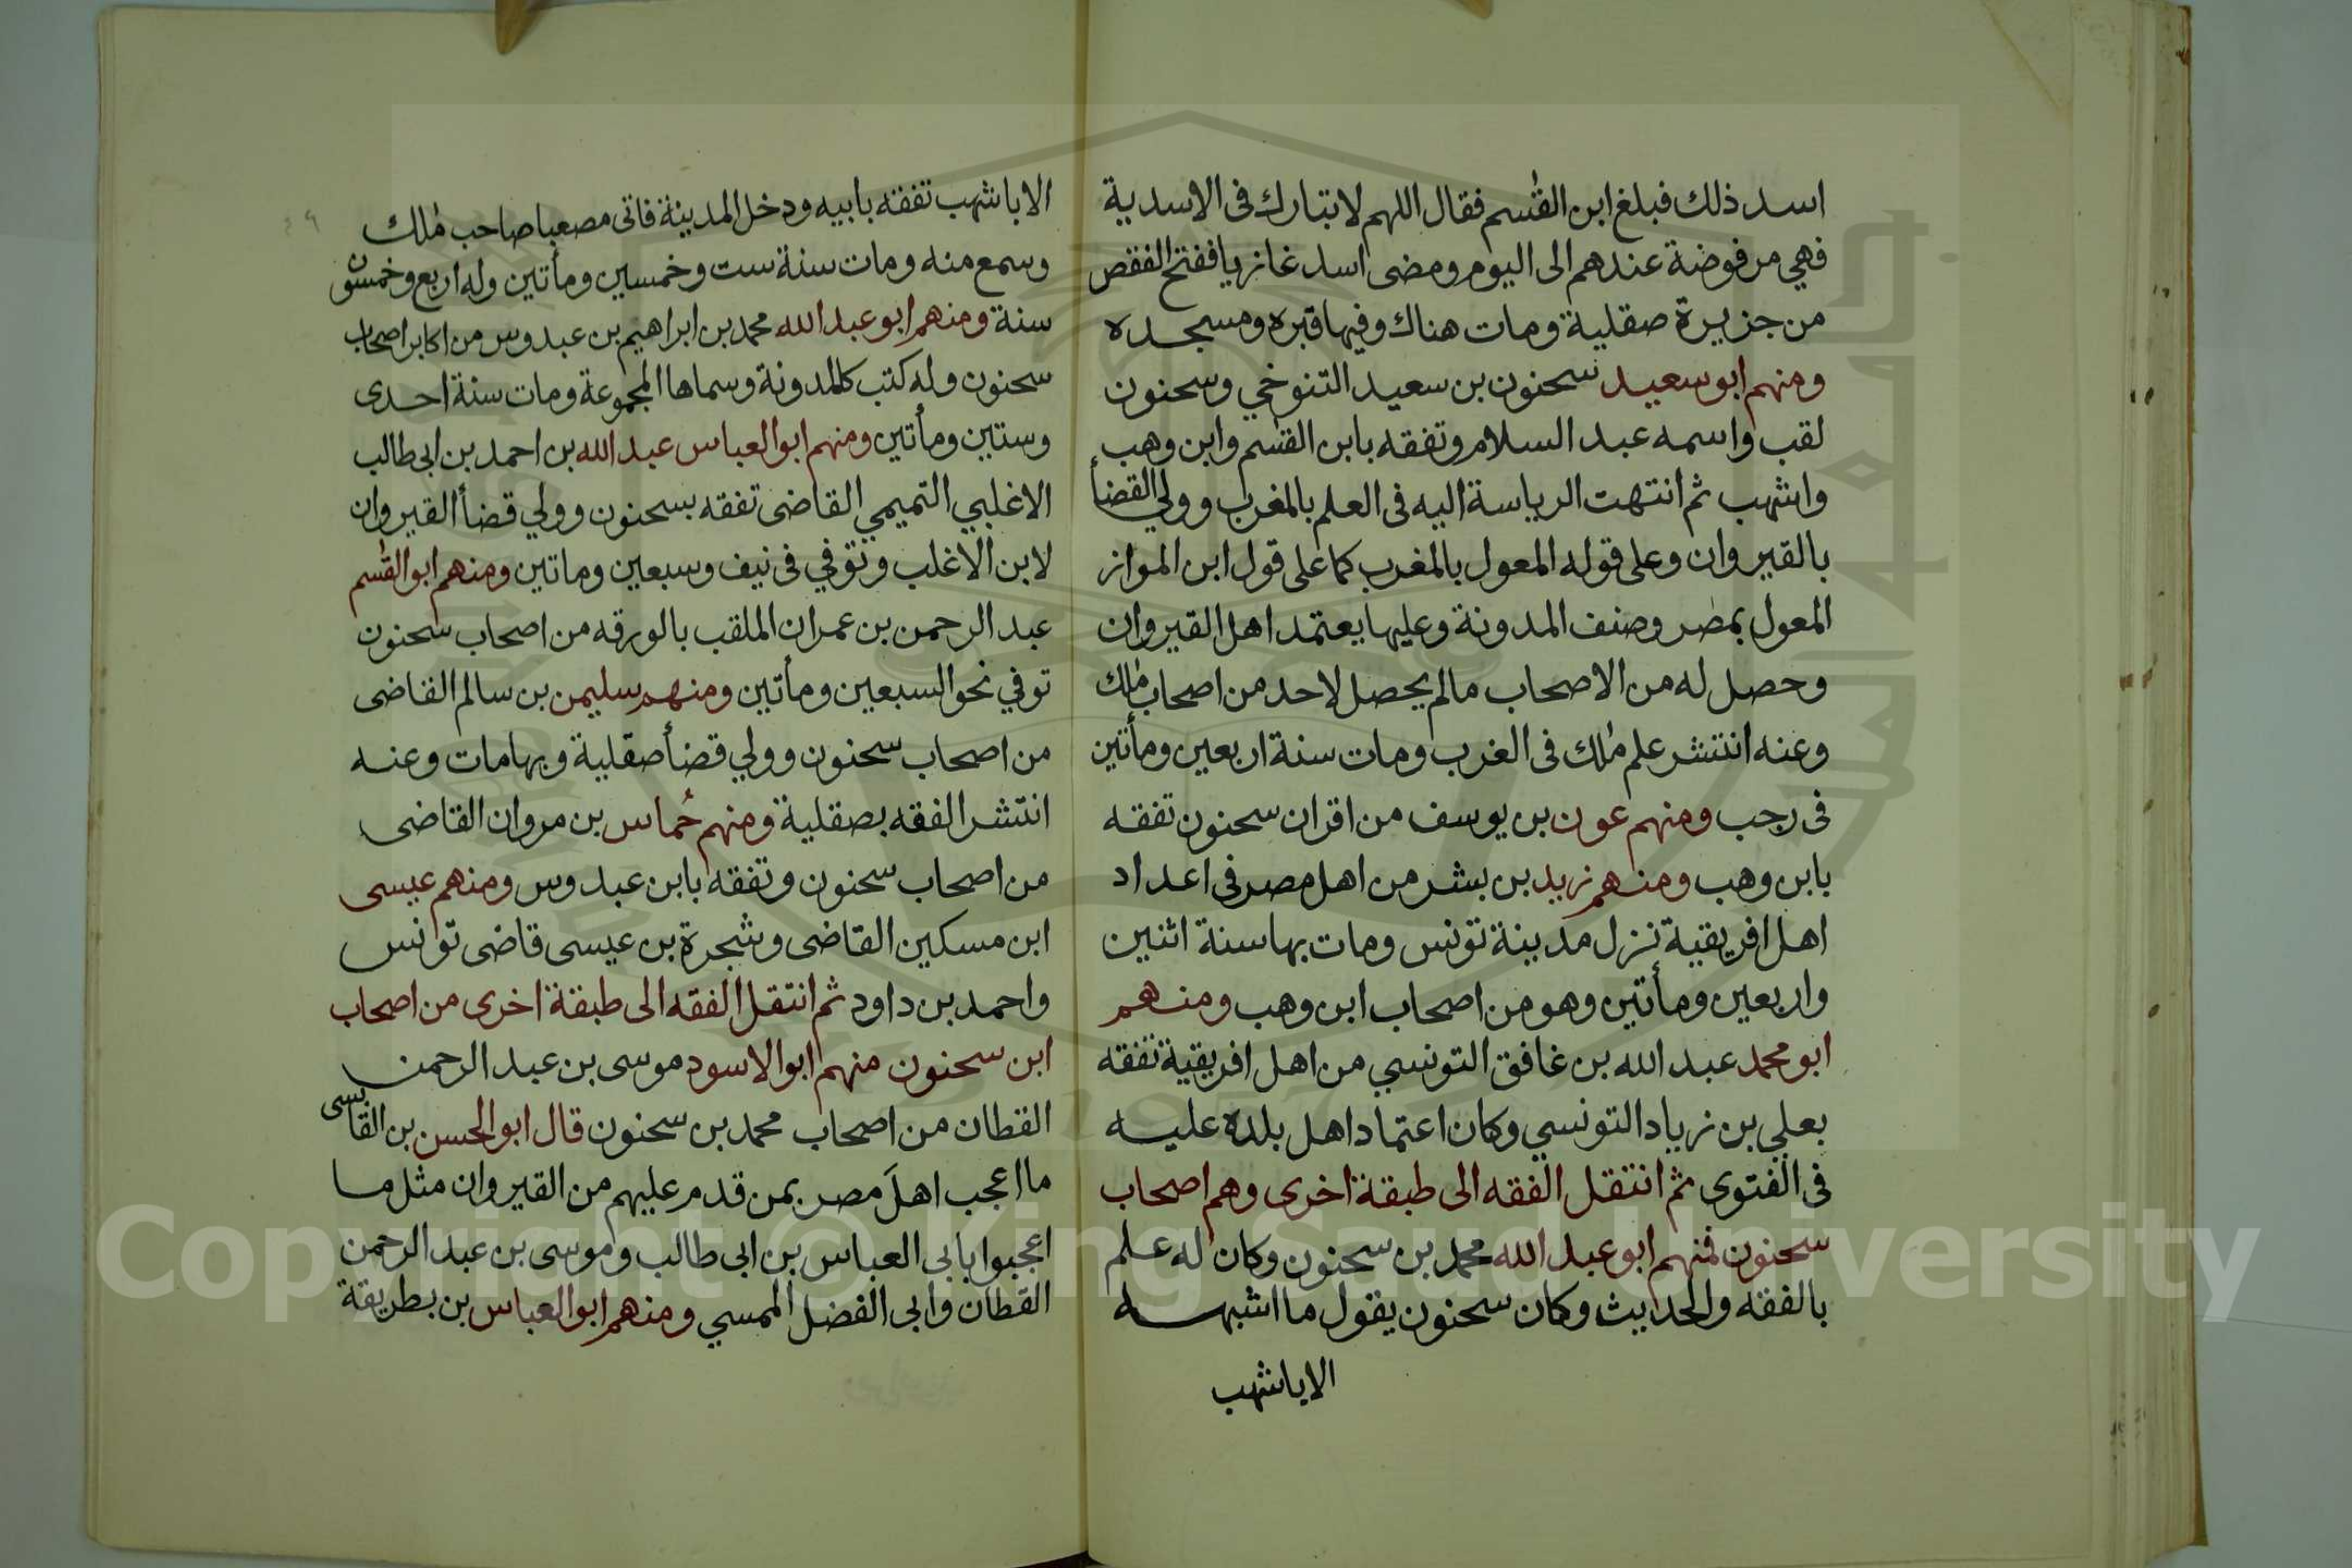 اسد ذلك فبلغ ابن القٰسم فقال اللهم لا تبارك فى الاسدية
فهي مرفوضة عندهم الى اليوم ومضى اسد غازيا ففتح الققص
من جزيرة صقلية ومات هناك وفيها قبره ومسجده
ومنهم ابو سعيد سحنون بن سعيد التنوخي وسحنون
لقب واسمه عبد السلام وتفقه بابن القٰسم وابن وهب
واشهب ثم انتهت الرياسة اليه فى العلم بالمغرب وولي القضأ
بالقيروان وعلى قوله المعول بالمغرب كما على قول ابن المواز
المعول بمصر وصنف المدونة وعليها يعتمد اهل القيروان
وحصل له من الاصحاب مالم يحصل لاحد من اصحاب مٰلك
وعنه انتشر علم مٰلك فى الغرب ومات سنة اربعين ومأتين
فى رجب ومنهم عون بن يوسف من اقران سحنون تفقه
بابن وهب ومنهم زيد بن بشر من اهل مصر فى اعداد
اهل افريقية نزل مدينة تونس ومات بها سنة اثنين
واربعين ومأتين وهو من اصحاب ابن وهب ومنهم
ابو محمد عبد الله بن غافق التونسي من اهل افريقية تفقه
بعلي بن زياد التونسي وكان اعتماد اهل بلده عليه
فى الفتوى ثم انتقل الفقه الى طبقة اخرى وهم اصحاب
سحنون فمنهم ابو عبد الله محمد بن سحنون وكان له علم
بالفقه والحديث وكان سحنون يقول ما اشبهه
الاباشهب
الاباشهب تفقه بابيه ودخل المدينة فاتى مصعبا صاحب مٰلك
وسمع منه ومات سنة ست وخمسين ومأتين وله اربع وخمسون
سنة ومنهم ابو عبد الله محمد بن ابراهيم بن عبدوس من اكابر اصحاب
سحنون وله كتب كالمدونة وسماها المجموعة ومات سنة احدى
وستين ومأتين ومنهم ابو العباس عبد الله بن احمد بن ابى طالب
الاغلبي التميمي القاضى تفقه بسحنون وولي قضأ القيروان
لابن الاغلب وتوفي فى نيف وسبعين وماتين ومنهم ابو القٰسم
عبد الرحمن بن عمران الملقب بالورقه من اصحاب سحنون
توفي نحو السبعين ومأتين ومنهم سليمن بن سالم القاضى
من اصحاب سحنون وولي قضأ صقلية وبها مات وعنه
انتشر الفقه بصقلية ومنهم حُماس بن مروان القاضى
من اصحاب سحنون وتفقه بابن عبدوس ومنهم عيسى
ابن مسكين القاضى وشجرة بن عيسى قاضى تونس
واحمد بن داود ثم انتقل الفقه الى طبقة اخرى من اصحاب
ابن سحنون منهم ابو الاسود موسى بن عبد الرحمن
القطان من اصحاب محمد بن سحنون قال ابو الحسن بن القابسى
ما اعجب اهلَ مصر بمن قدم عليهم من القيروان مثل ما
اعجبوا بابى العباس بن ابى طالب وموسى بن عبد الرحمن
القطان وابى الفضل الممسي ومنهم ابو العباس بن بطريقة
Copyright © King Saud University